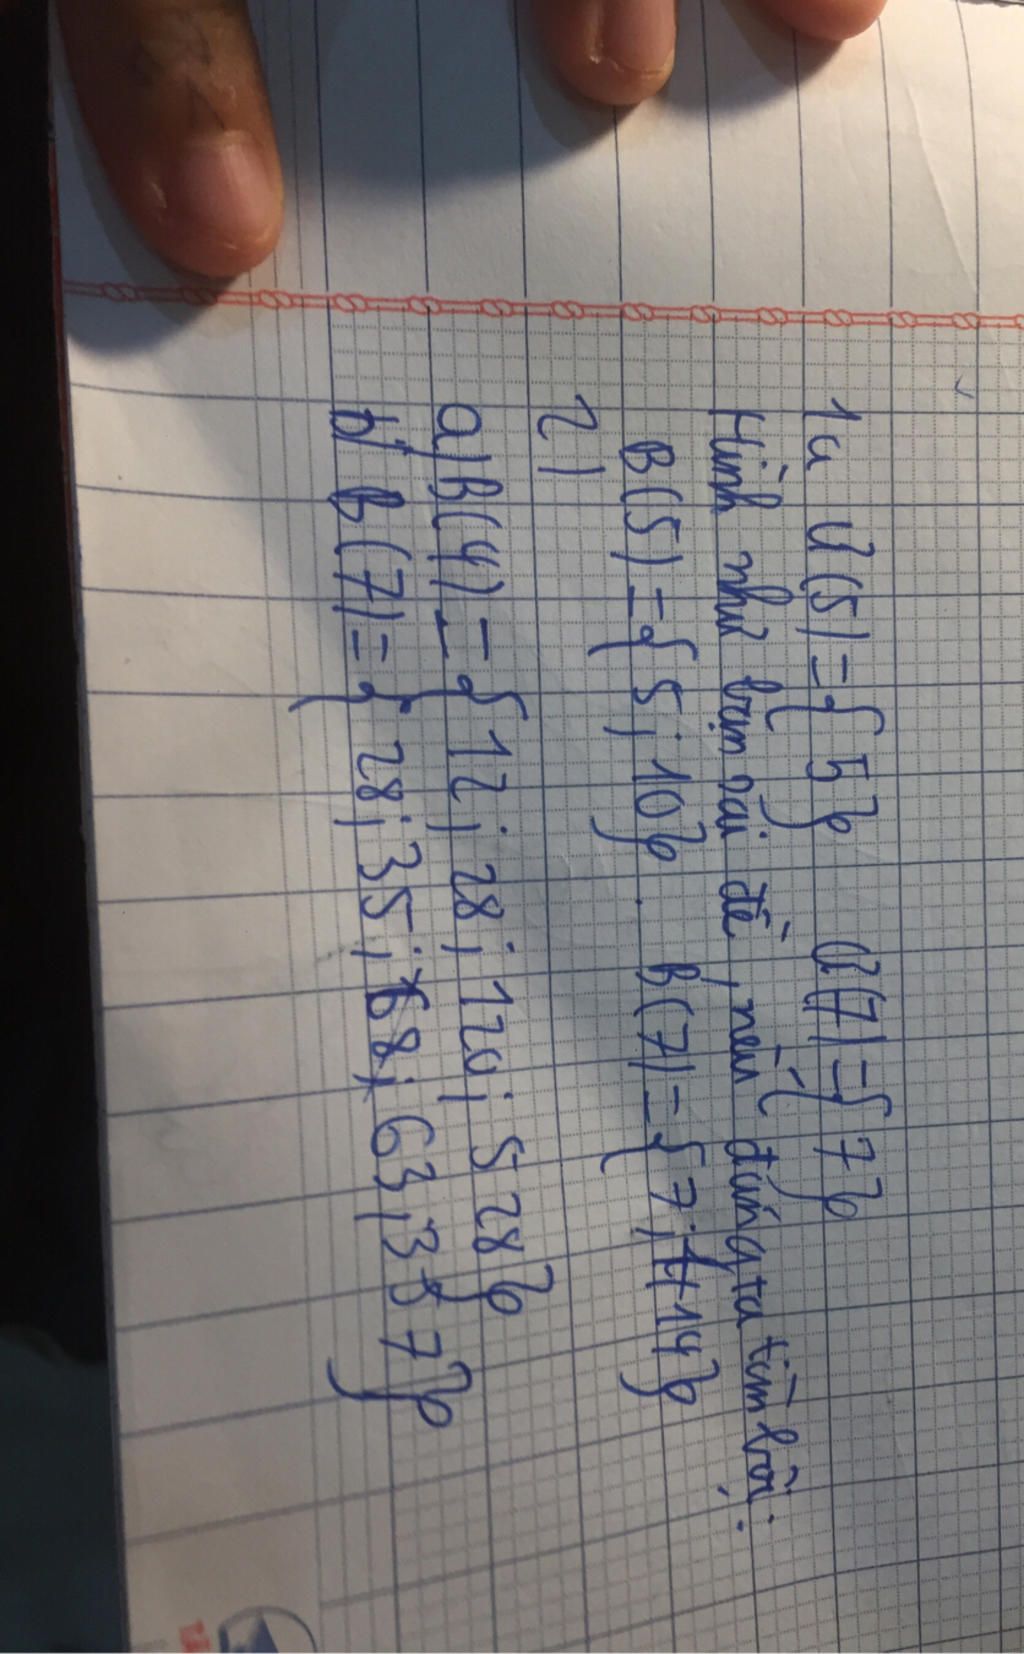 1a Ư(5) = { 5} Ư(7) = { 7}
Hình như bạn sai đề, nếu đúng ta tìm bội:
B(5) = { 5; 10} . B(7) = { 7; 14}
2)
a) B(4) = { 12; 28; 120; 528}
b) B(7) = { 28; 35; 68; 63; 357}